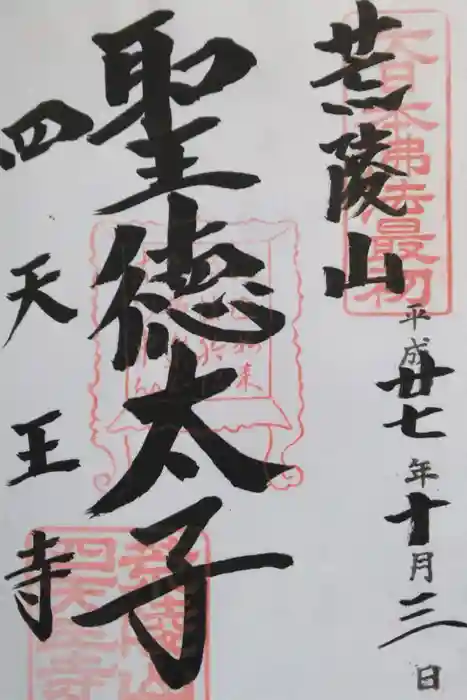 荒陵山
大日本佛法最初
平成廿七年十月三日
聖徳太子
四天王寺
荒陵山
四天王寺